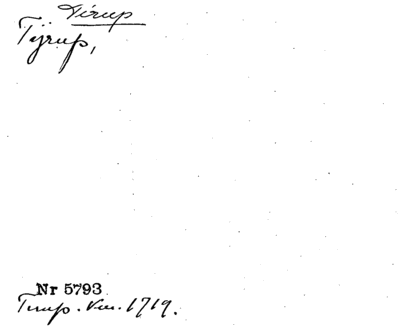 Tirup
Tÿrup,
Nr 5793
Tirup. Km. 1719.